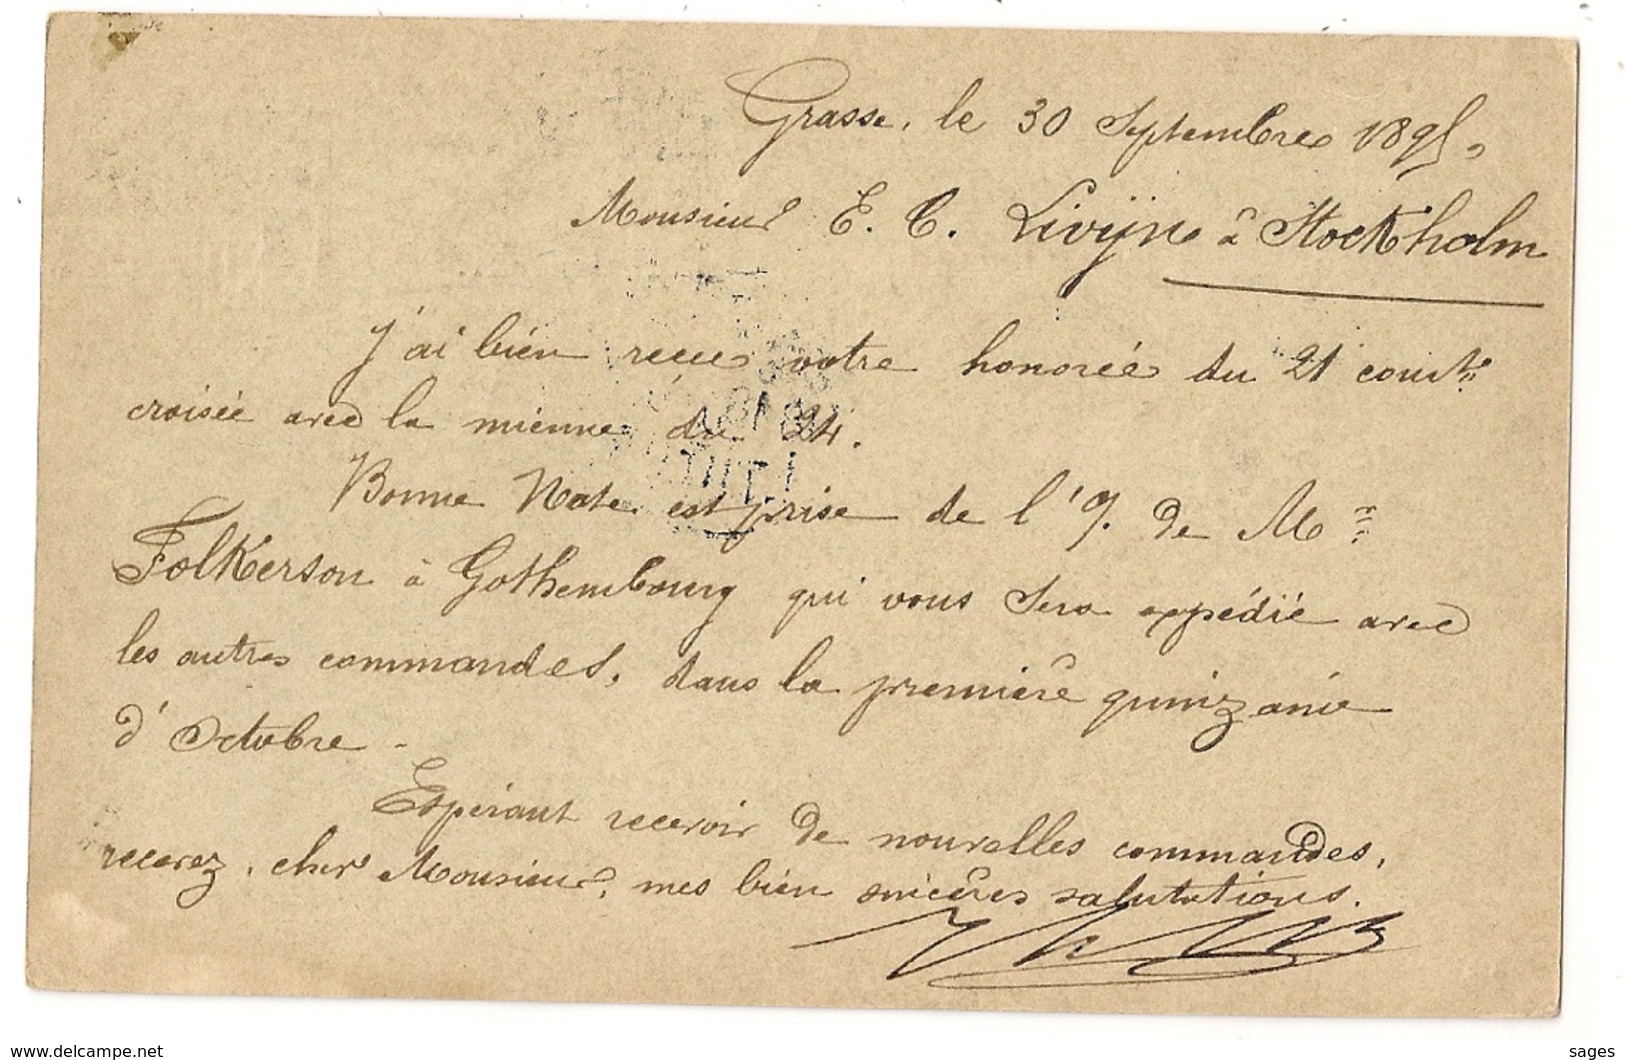 Grasse, le 30 Septembre 1895,
Monsieur E. C. Livijn à Stockholm
J'ai bien reçu votre honorée du 21 court
croisée avec la mienne du 24.
Bonne Note est prise de l'o/. de Mr
Folkerson à Gothembourg qui vous sera expédié avec
les autres commandes, dans la première quinzaine
d'Octobre -
Espérant recevoir de nouvelles commandes,
recevez, cher Monsieur, mes bien sincères salutations.
www.delcampe.net
sages